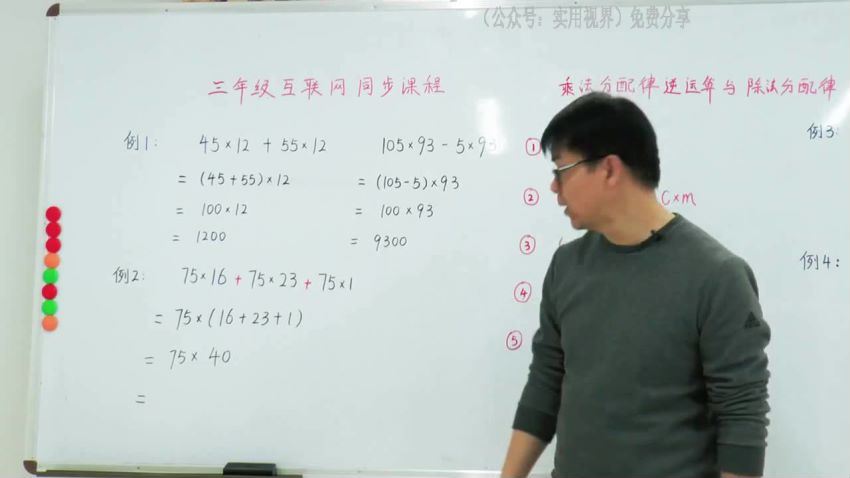 （公众号：实用视界）免费分享
三年级互联网同步课程
乘法分配律逆运算与除法分配律
例1: 45×12 + 55×12
= (45+55)×12
= 100×12
= 1200
105×93 - 5×93
= (105-5)×93
= 100×93
= 9300
例2: 75×16 + 75×23 + 75×1
= 75×(16+23+1)
= 75×40
=
①
② C×m
③
④
⑤
例3:
例4: